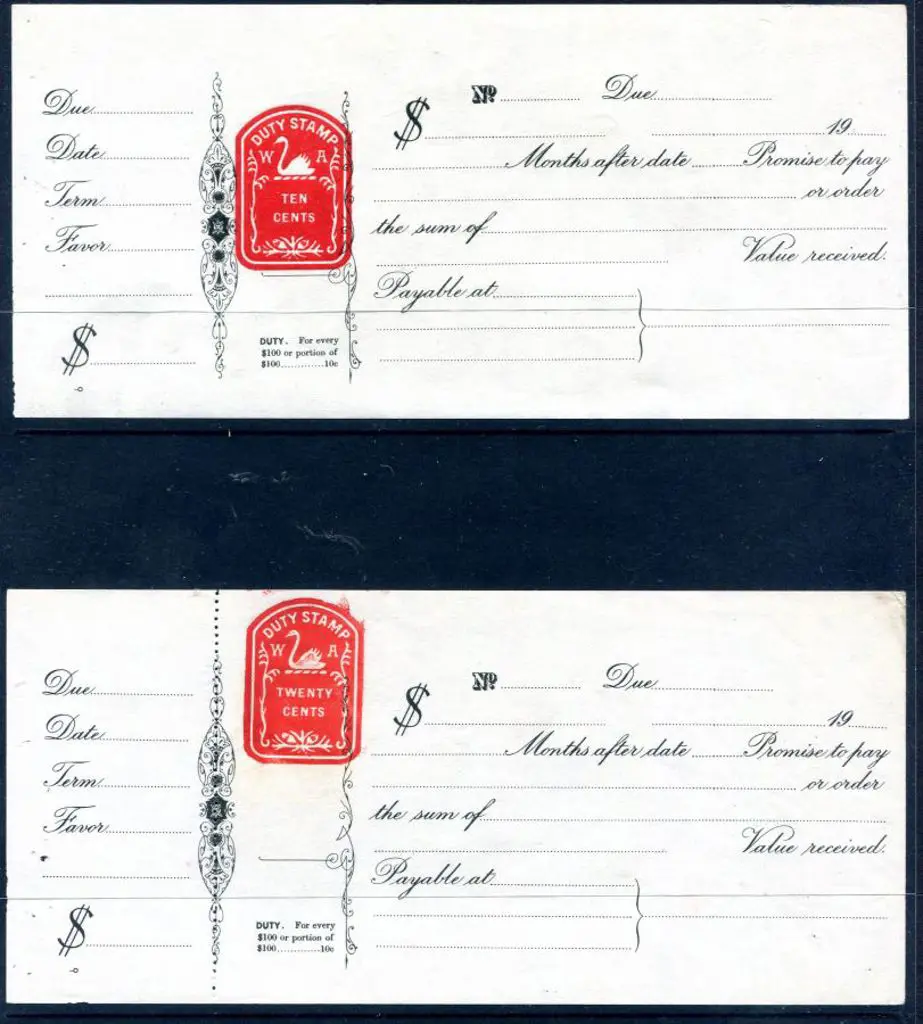 Due
Date
Term
Favor
$
DUTY STAMP
W A
TEN
CENTS
DUTY. For every
$100 or portion of
$100 10c
No Due
$ 19
Months after date Promise to pay
or order
the sum of
Value received.
Payable at
Due
Date
Term
Favor
$
DUTY STAMP
W A
TWENTY
CENTS
DUTY. For every
$100 or portion of
$100 10c
No Due
$ 19
Months after date Promise to pay
or order
the sum of
Value received.
Payable at